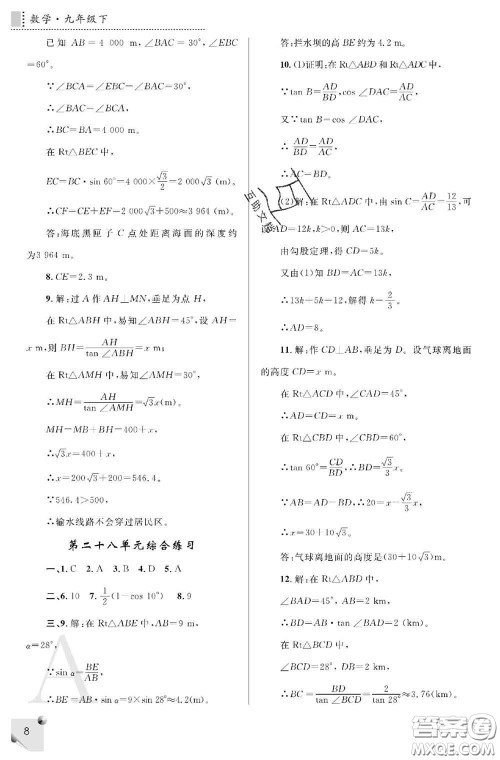 数学·九年级下
已知 AB=4 000 m，∠BAC=30°，∠EBC
=60°。
∵∠BCA=∠EBC-∠BAC=30°，
∴∠BAC=∠BCA，
∴BC=BA=4 000 m。
在 Rt△BEC 中，
EC=BC·sin 60°=4 000×√3/2=2 000√3 (m)。
∴CF=CE+EF=2 000√3+500≈3 964 (m)。
答：海底黑匣子 C 点处距离海面的深度约
为3 964 m。
8. CE=2.3 m。
9. 解：过 A 作 AH⊥MN，垂足为点 H，
在 Rt△ABH 中，易知∠ABH=45°，设 AH=
x m，则 BH=AH/tan∠ABH=x m；
在 Rt△AMH 中，易知∠AMH=30°，
∴MH=AH/tan∠AMH=√3x(m)。
MH=MB+BH=400+x，
∴√3x=400+x，
∴x=200√3+200≈546.4。
∵546.4>500，
∴输水线路不会穿过居民区。
第二十八单元综合练习
一、1. C 2. A 3. B 4. D 5. A
二、6. 10 7. 1/2(1-cos 10°) 8. 9
三、9. 解：在 Rt△ABE 中，∵AB=9 m，
α=28°，
∵sin α=BE/AB，
∴BE=AB·sin α=9×sin 28°≈4.2(m)。
8
答：拦水坝的高 BE约为 4.2 m。
10. (1)证明：在 Rt△ABD 和 Rt△ADC 中，
∵tan B=AD/BD，cos∠DAC=AD/AC，
又∵tan B=cos∠DAC，
∴AD/BD=AD/AC，
∴AC=BD。
(2)解：在 Rt△ADC 中，由 sin C=AD/AC=12/13，可
设AD=12k，AC=13k，k>0，则 AC=13k，
由勾股定理，得 CD=5k。
又由(1)知 BD=AC=13k，
∴13k+5k=12，解得 k=2/3，
∴AD=8。
11. 解：作 CD⊥AB，垂足为 D。设气球离地面
的高度 CD=x m。
在 Rt△ACD 中，∠CAD=45°，
∴AD=CD=x m。
在 Rt△CBD 中，∠CBD=60°，
∴tan 60°=CD/BD，∴BD=√3/3x m。
∵AB=AD-BD，∴20=x-√3/3x，
∴x=30+10√3。
答：气球离地面的高度是(30+10√3)m。
12. 解：在 Rt△ABD 中，
∠BAD=45°，AB=2 km，
∴BD=AB·tan∠BAD=2 km。
在 Rt△CBD 中，
∠BCD=28°，BD=2 km，
∴BC=BD/tan∠BCD=2/tan 28°≈3.76(km)。
答案圈
MXQE.COM